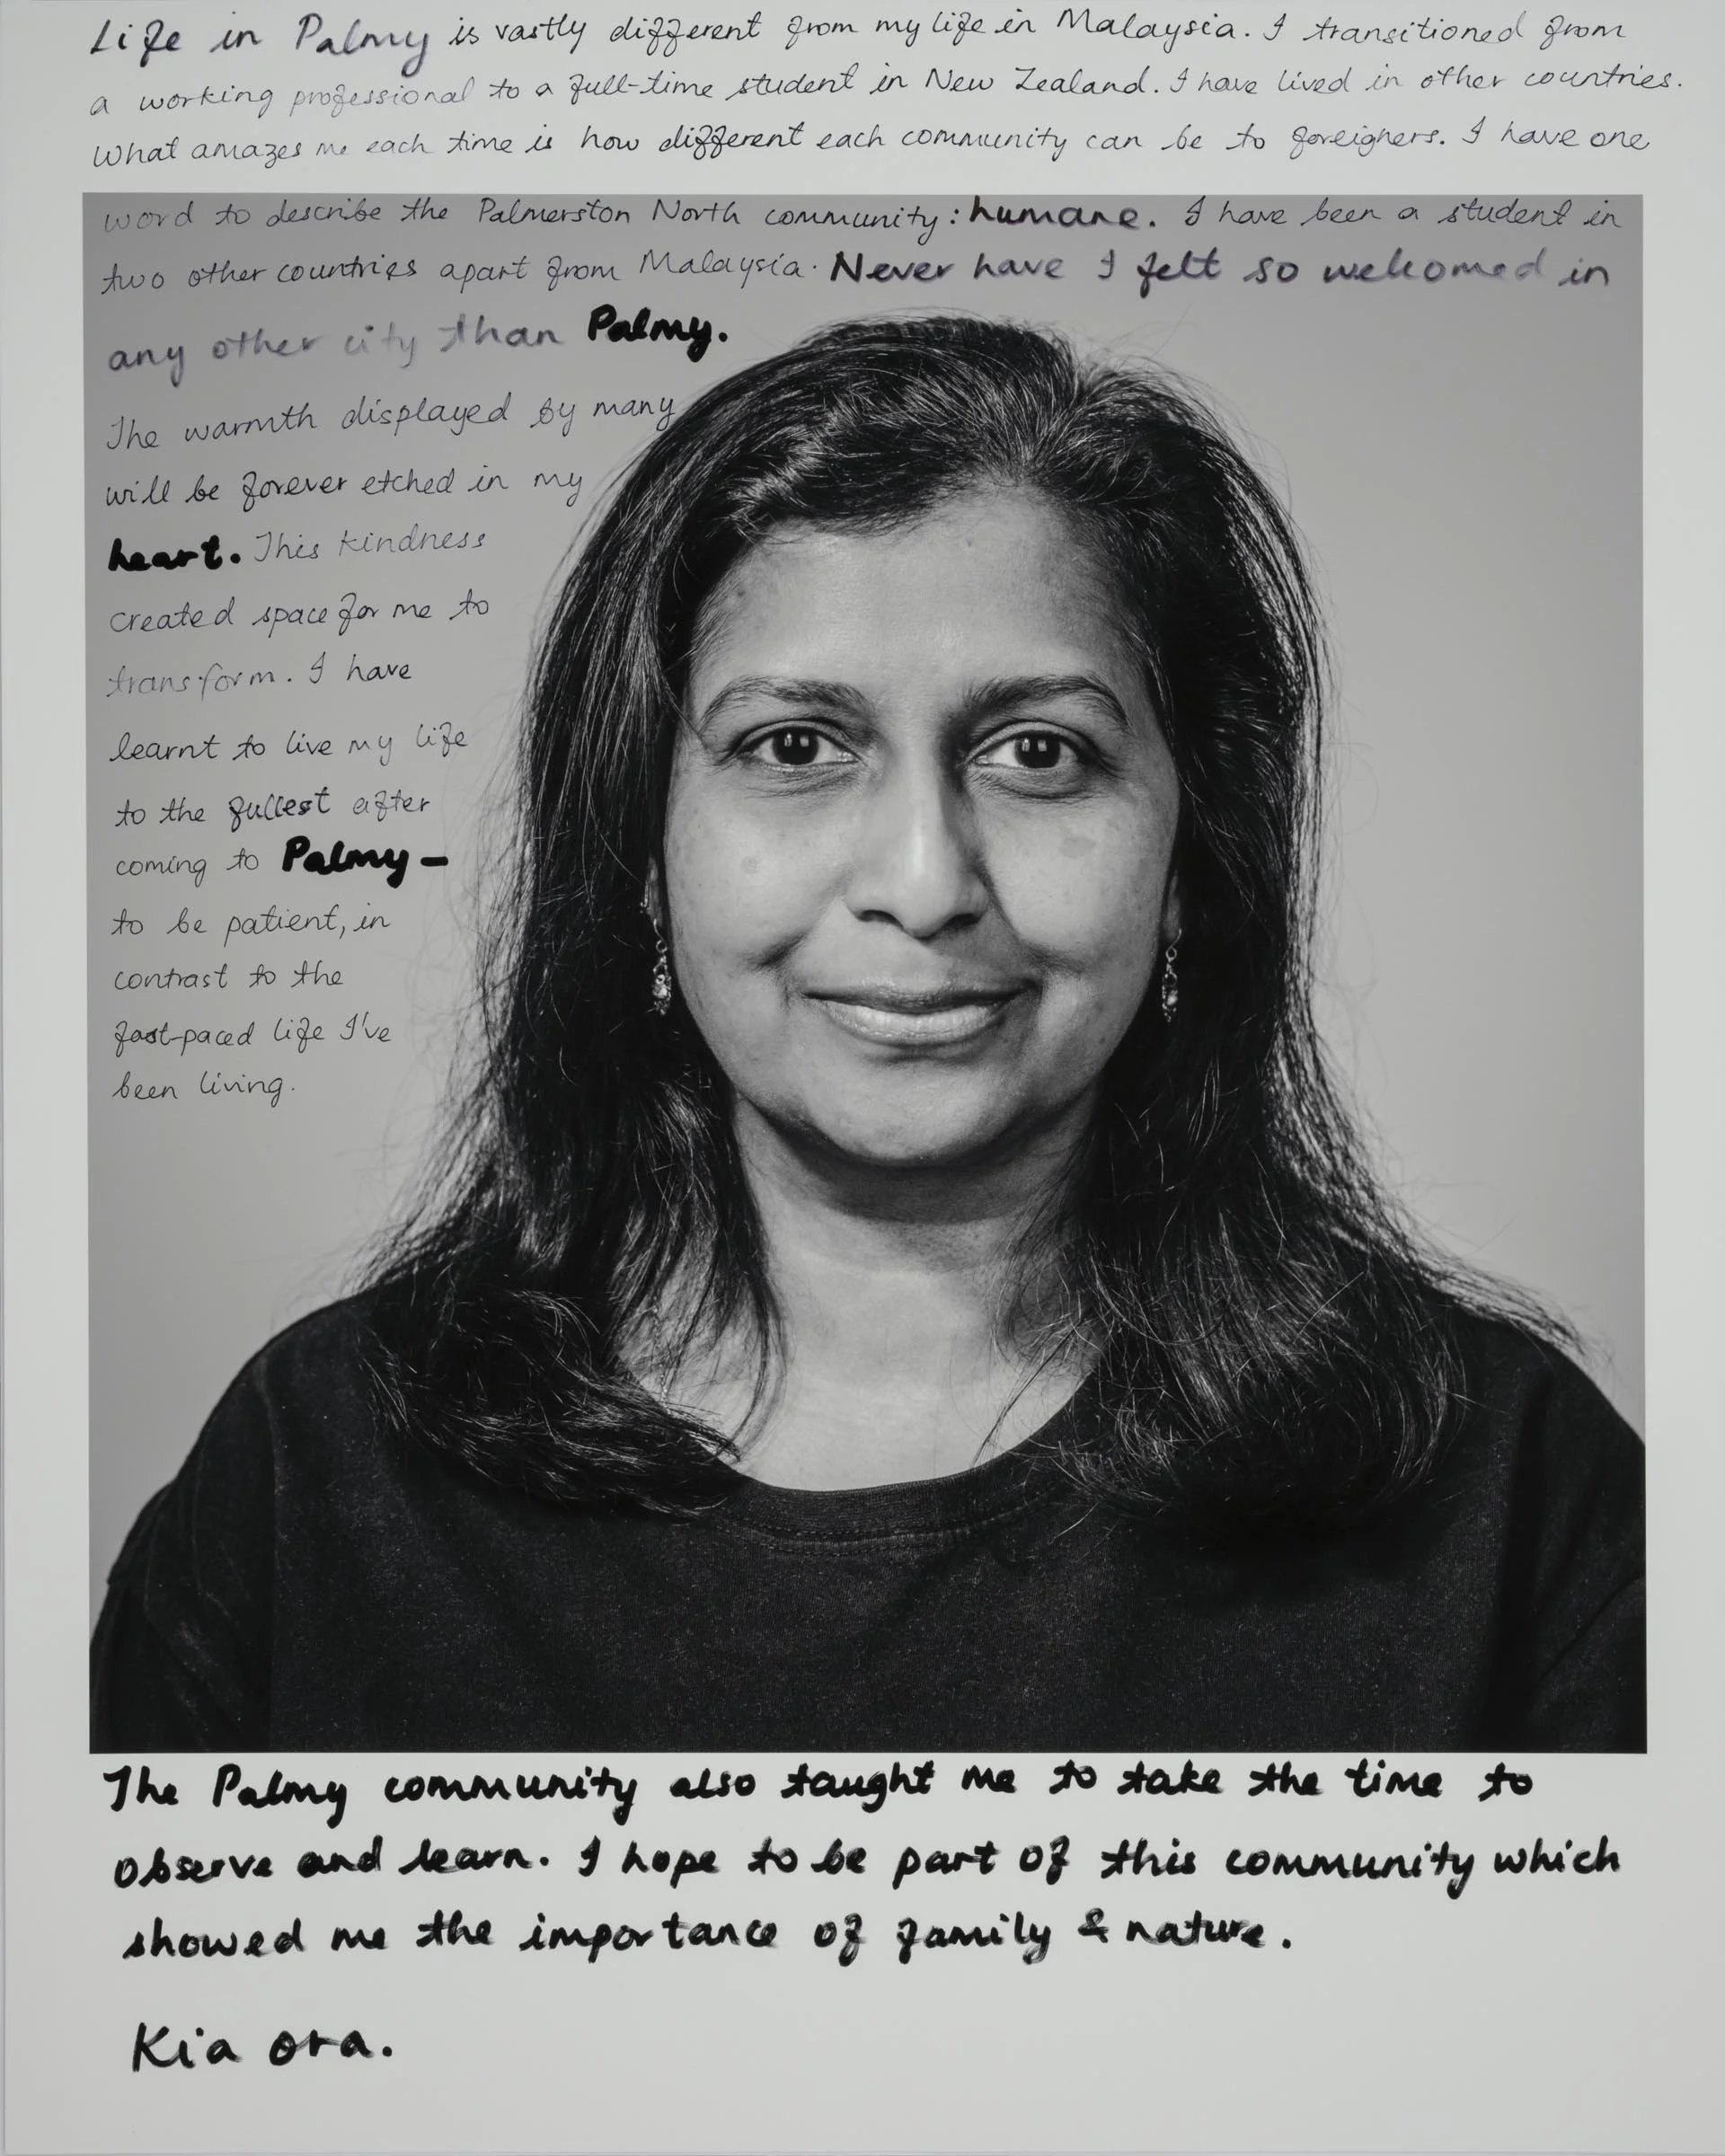 Life in Palmy is vastly different from my life in Malaysia. I transitioned from
a working professional to a full-time student in New Zealand. I have lived in other countries.
What amazes me each time is how different each community can be to foreigners. I have one
word to describe the Palmerston North community: humane. I have been a student in
two other countries apart from Malaysia. Never have I felt so welcomed in
any other city than Palmy.
The warmth displayed by many
will be forever etched in my
heart. This kindness
created space for me to
transform. I have
learnt to live my life
to the fullest after
coming to Palmy –
to be patient, in
contrast to the
fast-paced life I've
been living.
The Palmy community also taught me to take the time to
observe and learn. I hope to be part of this community which
showed me the importance of family & nature.
Kia ora.